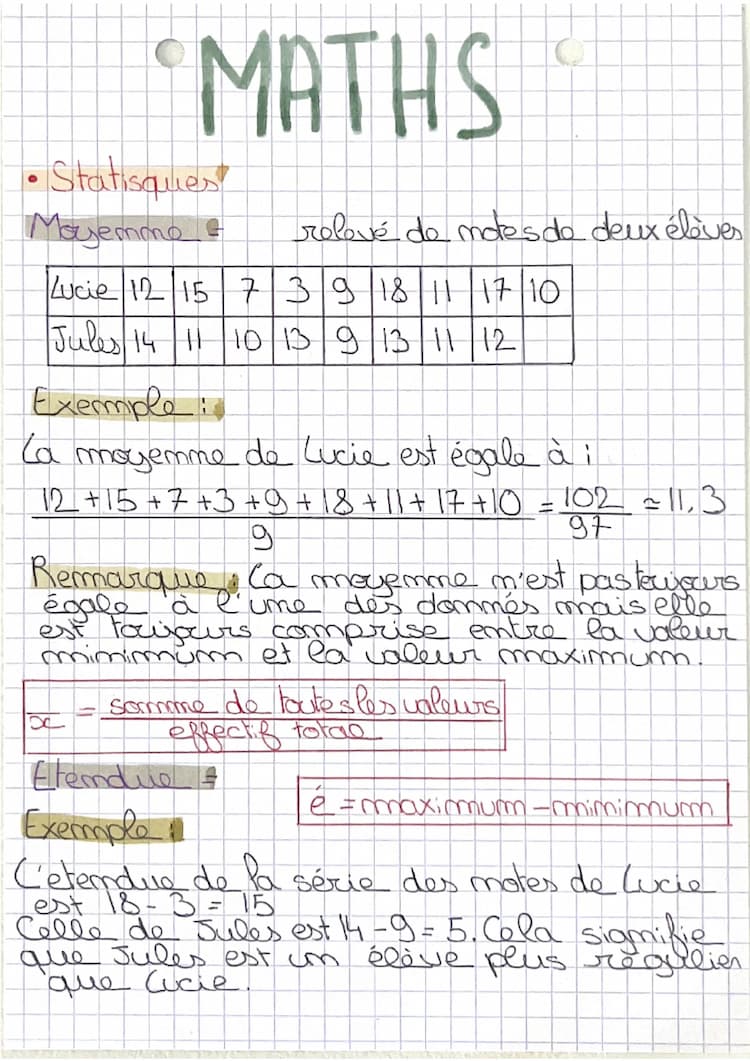 MATHS
• Statisques
Moyenne = relevé de notes de deux élèves
Lucie 12 15 7 3 9 18 11 17 10
Jules 14 11 10 13 9 13 11 12
Exemple :
La moyenne de Lucie est égale à :
12+15+7+3+9+18+11+17+10 = 102 ≈ 11,3
9 97
Remarque : La moyenne n'est pas toujours
égale à l'une des donnés mais elle
est toujours comprise entre la valeur
minimum et la valeur maximum.
x̅ = somme de toutes les valeurs
effectif total
Etendue =
é = maximum - minimum
Exemple :
L'etendue de la série des notes de Lucie
est 18 - 3 = 15
Celle de Jules est 14 - 9 = 5. Cela signifie
que Jules est un élève plus régulier
que Lucie.